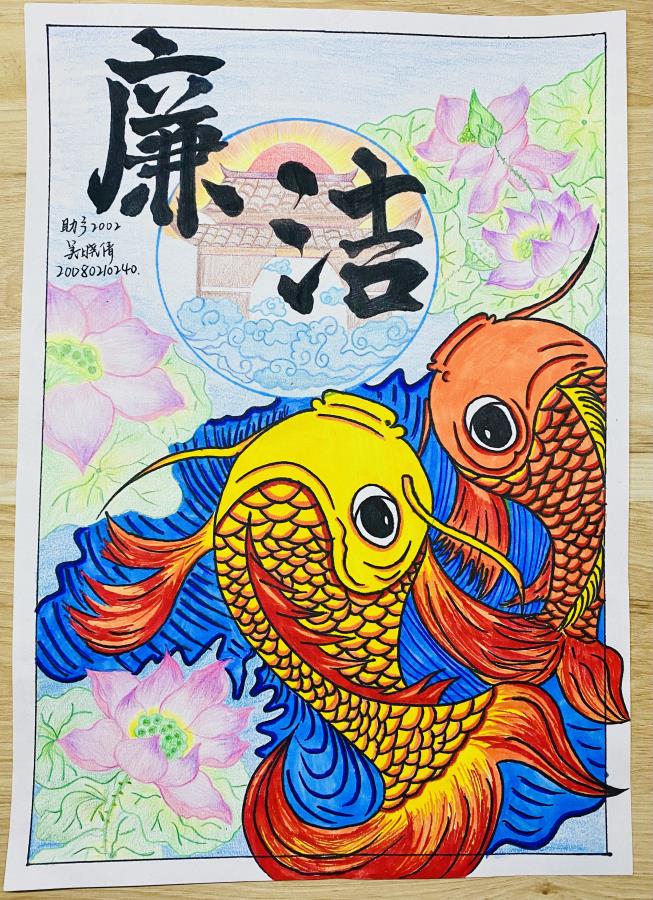 廉洁
助产2002
吴晓倩
20080210240.